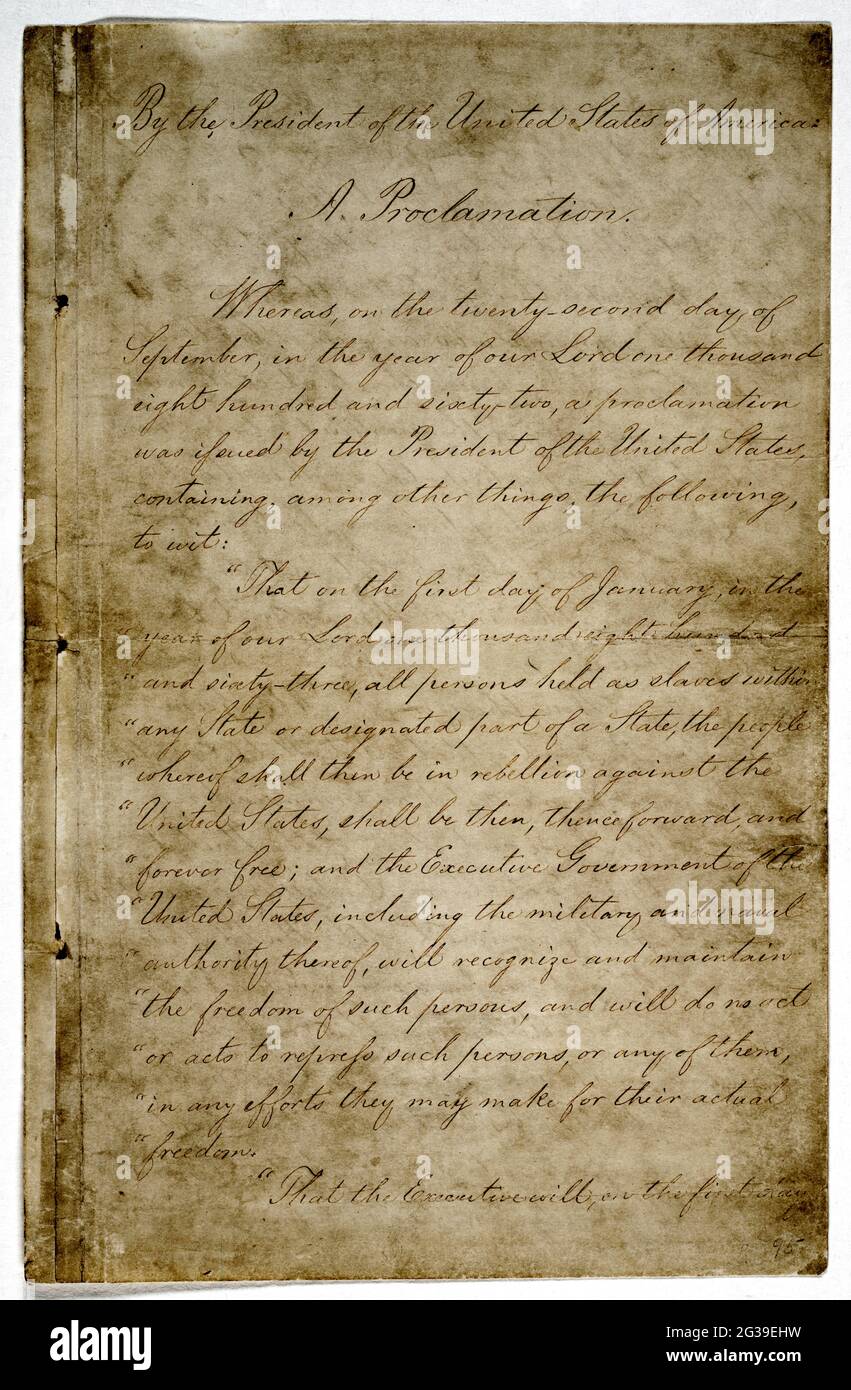 By the President of the United States of America:
A Proclamation.
Whereas, on the twenty-second day of
September, in the year of our Lord one thousand
eight hundred and sixty-two, a proclamation
was issued by the President of the United States,
containing, among other things, the following,
to wit:
"That on the first day of January, in the
"year of our Lord one thousand eight hundred
"and sixty-three, all persons held as slaves within
"any State or designated part of a State, the people
"whereof shall then be in rebellion against the
"United States, shall be then, thenceforward, and
"forever free; and the Executive Government of the
"United States, including the military and naval
"authority thereof, will recognize and maintain
"the freedom of such persons, and will do no act
"or acts to repress such persons, or any of them,
"in any efforts they may make for their actual
"freedom.
"That the Executive will, on the first day
95
alamy
Image ID: 2G39EHW
www.alamy.com